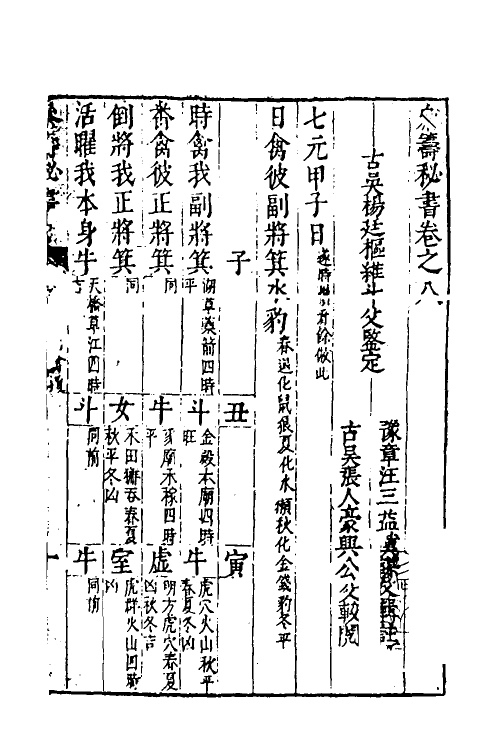 籌秘書卷之八
古吳楊廷樞維斗父鑒定
豫章汪三益
古吳張人豪興公父較閱
七元甲子日 逐時 餘倣此
日禽彼副將箕水豹 春返化鼠狼夏化水獺秋化金錢豹冬平
子 丑 寅
時禽我副將箕 湖草藻前四時平 斗 金殿本廟四時旺 牛 虎穴火山秋平春夏冬凶
番禽彼正將箕 同 牛 芻廟禾稼四時平 虛 明方虎穴春夏凶秋冬吉
倒將我正將箕 同 女 禾田獬吞春夏秋平冬凶 室 虎群火山四時凶
活曜我本身牛 天橋草江四時吉 斗 同前 牛 同前